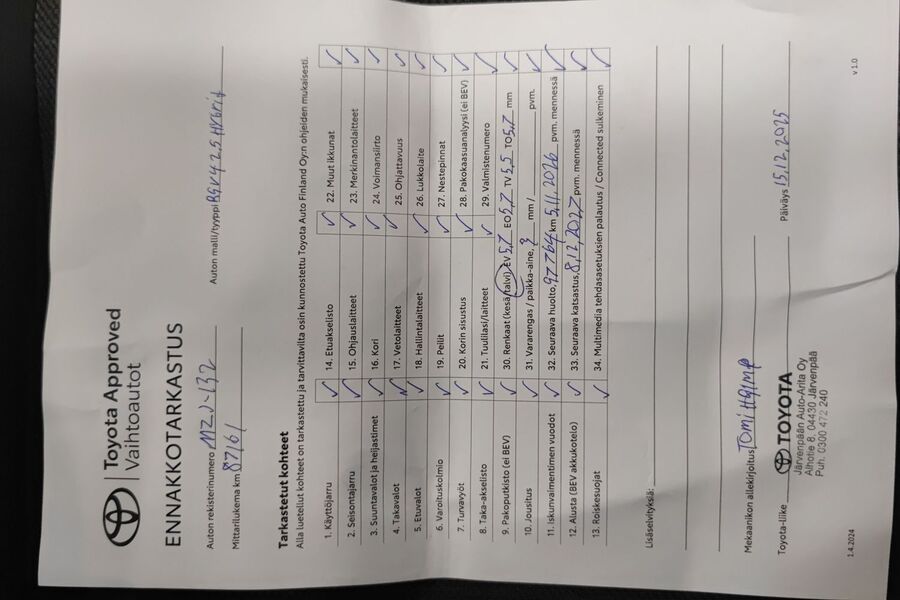 Toyota Approved
Vaihtoautot
ENNAKKOTARKASTUS
Auton rekisterinumero MZJ-132 Auton malli/tyyppi RAV4 2,5 Hybrid
Mittarilukema km 87161
Tarkastetut kohteet
Alla luetellut kohteet on tarkastettu ja tarvittavilta osin kunnostettu Toyota Auto Finland Oy:n ohjeiden mukaisesti.
1. Käyttöjarru ✓ 14. Etuakselisto ✓ 22. Muut ikkunat ✓
2. Seisontajarru ✓ 15. Ohjauslaitteet ✓ 23. Merkinantolaitteet ✓
3. Suuntavalot ja heijastimet ✓ 16. Kori ✓ 24. Voimansiirto ✓
4. Takavalot ✓ 17. Vetolaitteet ✓ 25. Ohjattavuus ✓
5. Etuvalot ✓ 18. Hallintalaitteet ✓ 26. Lukkolaite ✓
6. Varoituskolmio ✓ 19. Peilit ✓ 27. Nestepinnat ✓
7. Turvavyöt ✓ 20. Korin sisustus ✓ 28. Pakokaasuanalyysi (ei BEV) ✓
8. Taka-akselisto ✓ 21. Tuulilasi/laitteet ✓ 29. Valmistenumero ✓
9. Pakoputkisto (ei BEV) ✓ 30. Renkaat (kesä/talvi) EV 5,7 EO 5,7 TV 5,5 TO 5,7 mm ✓
10. Jousitus ✓ 31. Vararengas / paikka-aine, mm / pvm. ✓
11. Iskunvaimentimen vuodot ✓ 32. Seuraava huolto, 97764 km 5,11,2026 pvm. mennessä ✓
12. Alusta (BEV akkukotelo) ✓ 33. Seuraava katsastus, 8,12,2027 pvm. mennessä ✓
13. Roiskesuojat ✓ 34. Multimedia tehdasasetuksien palautus / Connected sulkeminen ✓
Lisäselvityksiä:
Mekaanikon allekirjoitus Tomi
Toyota-liike TOYOTA Päiväys 15,12,2025
Järvenpään Auto-Arita Oy
Alhotie 8, 04430 Järvenpää
Puh. 0300 472 240
1.4.2024 v 1.0